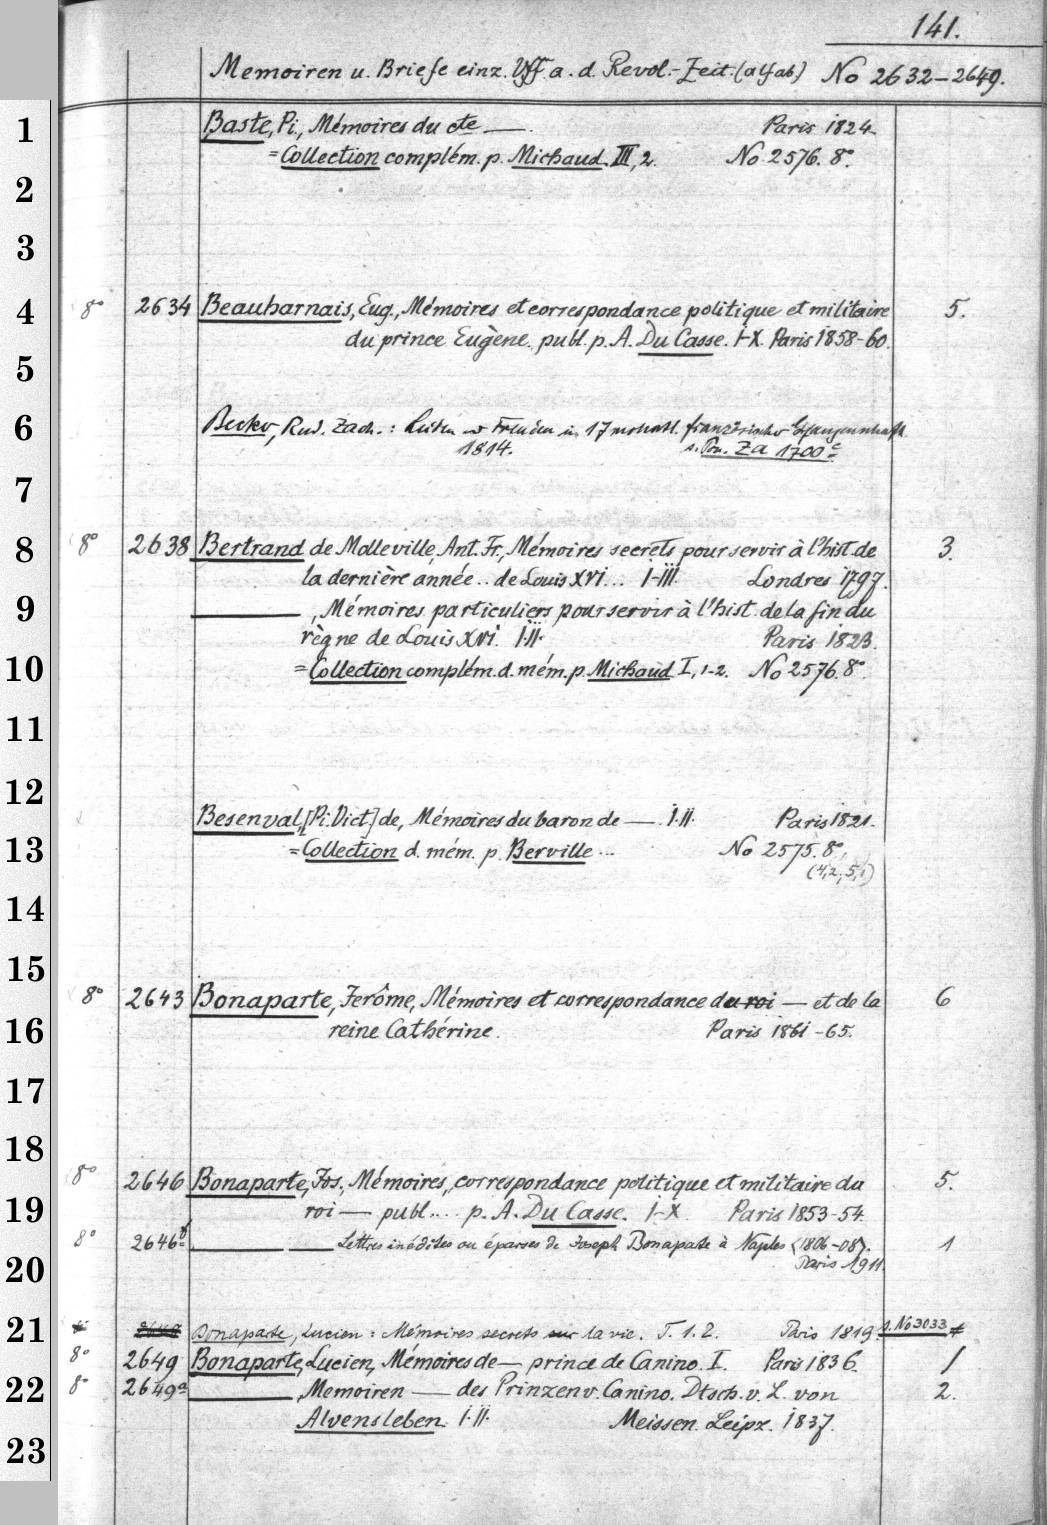 141.
Memoiren u. Briefe einz. Vff a. d. Revol.-Zeit. (alfab) No 2632-2649.
1 Baste, Pi., Mémoires du cte —. Paris 1824
= Collection complém. p. Michaud III, 2. No 2576. 8°.
2
3
4 8° 2634 Beauharnais, Eug., Mémoires et correspondance politique et militaire 5.
du prince Eugène. publ. p. A. Du Casse. I-X. Paris 1858-60.
5
6 Becker, Rud. Zach.: Leiden u. Freuden in 17 monatl. französischer Gefangenschaft
1814. s. Za 1700
7
8 8° 2638 Bertrand de Molleville, Ant. Fr., Mémoires secrets pour servir à l'hist. de 3.
la dernière année .. de Louis XVI ... I-III. Londres 1797.
9 ———, Mémoires particuliers pour servir à l'hist. de la fin du
règne de Louis XVI. I.II. Paris 1823.
10 = Collection complém. d. mém. p. Michaud I, 1-2. No 2576. 8°.
11
12
Besenval, [Pi. Vict] de, Mémoires du baron de — I.II. Paris 1821.
13 = Collection d. mém. p. Berville ... No 2575. 8°,
(4,2, 5,1)
14
15
8° 2643 Bonaparte, Jerôme, Mémoires et correspondance du roi — et de la 6
16 reine Cathérine. Paris 1861-65.
17
18
8° 2646 Bonaparte, Jos., Mémoires, correspondance politique et militaire du 5.
19 roi — publ.... p. A. Du Casse. I-X Paris 1853-54
8° 2646b ——— —— Lettres inédites ou éparses de Joseph Bonaparte à Naples (1806-08). 1
20 Paris 1911.
21 Bonaparte, Lucien: Mémoires secrets sur la vie. T. 1. 2. Paris 1819. s. No 3033
8° 2649 Bonaparte, Lucien, Mémoires de — prince de Canino. I. Paris 1836. 1
22 8° 2649a ———, Memoiren — des Prinzen v. Canino. Dtsch. v. L. von 2.
Alvensleben. I.II. Meissen. Leipz. 1837.
23